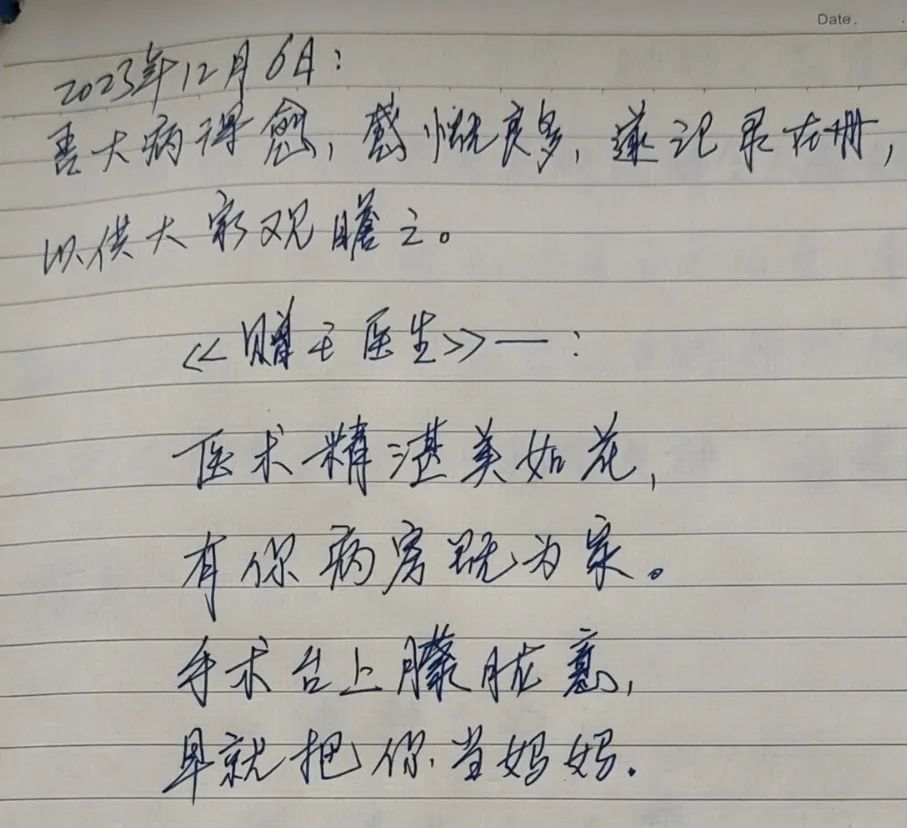 Date.
2023年12月6日：
吾大病得愈，感慨良多，遂记录在册，
以供大家观瞻之。
《赠王医生》一：
医术精湛美如花，
有你病房既为家。
手术台上朦胧意，
早就把你当妈妈.